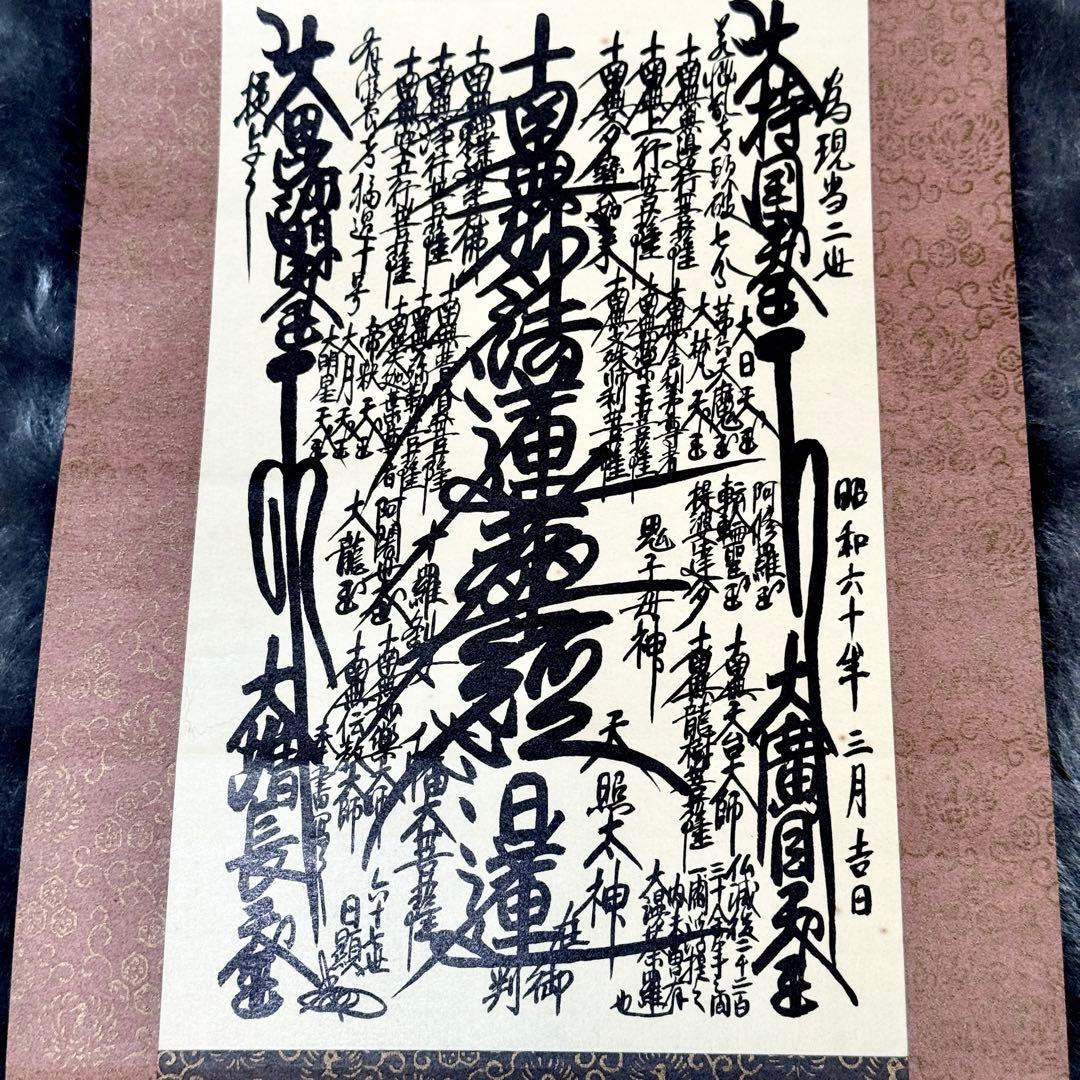 為現当二世
昭和六十年 三月吉日
大持国天王
大廣目天王
若悩乱者頭破七分
南無無邊行菩薩
南無上行菩薩
南無多寶如来
南無妙法蓮華経
日蓮
在御判
南無釈迦牟尼佛
南無浄行菩薩
南無安立行菩薩
有供養者福過十号
大毘沙門天王
大増長天王
大日天王
第六天魔王
大梵天王
南無舎利弗尊者
南無薬王菩薩
南無文殊師利菩薩
南無普賢菩薩
南無弥勒菩薩
南無迦葉尊者
帝釈天王
大月天王
大明星天王
阿修羅王
転輪聖王
提婆達多
鬼子母神
十羅刹女
阿闍世大王
大龍王
南無天台大師
南無龍樹菩薩
天照太神
八幡大菩薩
南無妙楽大師
南無伝教大師
仏滅後二千二百
三十余年之間
一閻浮提之
内未曽有
大漫荼羅
也
奉書写之
六十七世
日顕